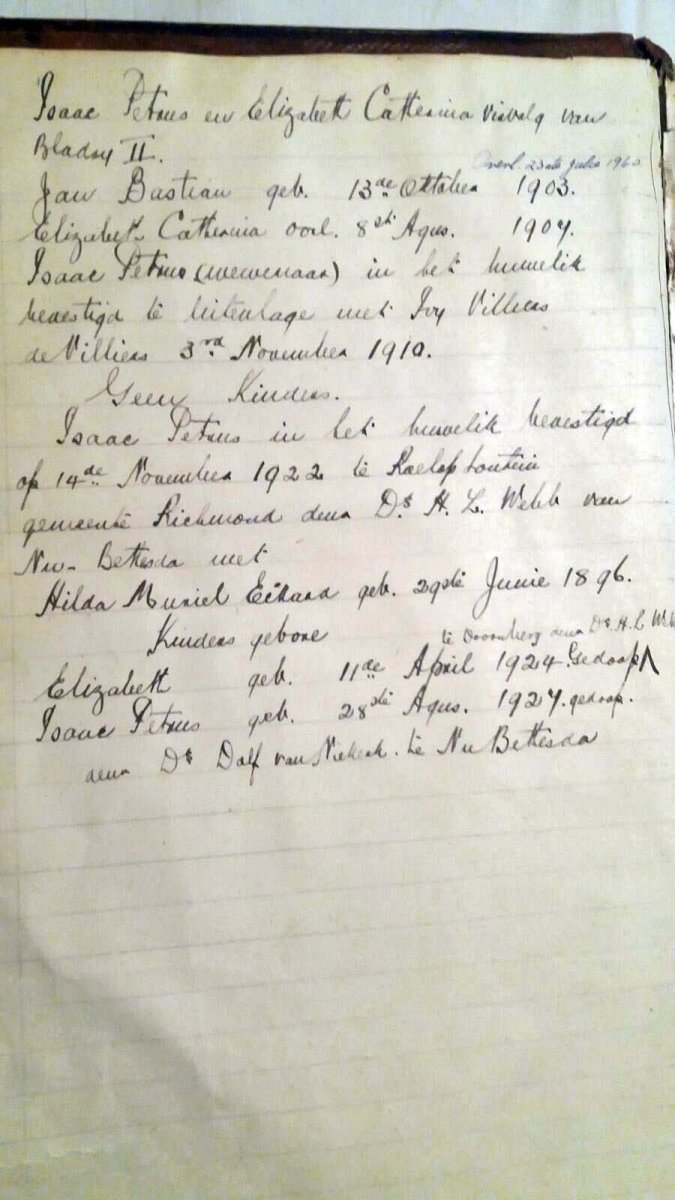 Isaac Petrus en Elizabeth Catherina vervolg van
Bladsy II.
Overl. 23ste Julie 1960
Jan Bastian geb. 13de Oktober 1903.
Elizabeth Catherina overl. 8ste Agus. 1907.
Isaac Petrus (wewenaar) in het huwelik
bevestigd te Uitenhage met Ivy Villiers
de Villiers 3rd November 1910.
Geen Kinders.
Isaac Petrus in het huwelik bevestigd
op 14de November 1922 te
gemeente Richmond deur Ds H. L. Webb van
Nu-Bethesda met
Hilda Muriel geb. 29ste Junie 1896.
Kinders gebore
te Doornberg deur Ds. H. L. Webb
Elizabeth geb. 11de April 1924. Gedoop
Isaac Petrus geb. 28ste Agus. 1927. gedoop.
deur Ds Dolf van Niekerk. te Nu Bethesda